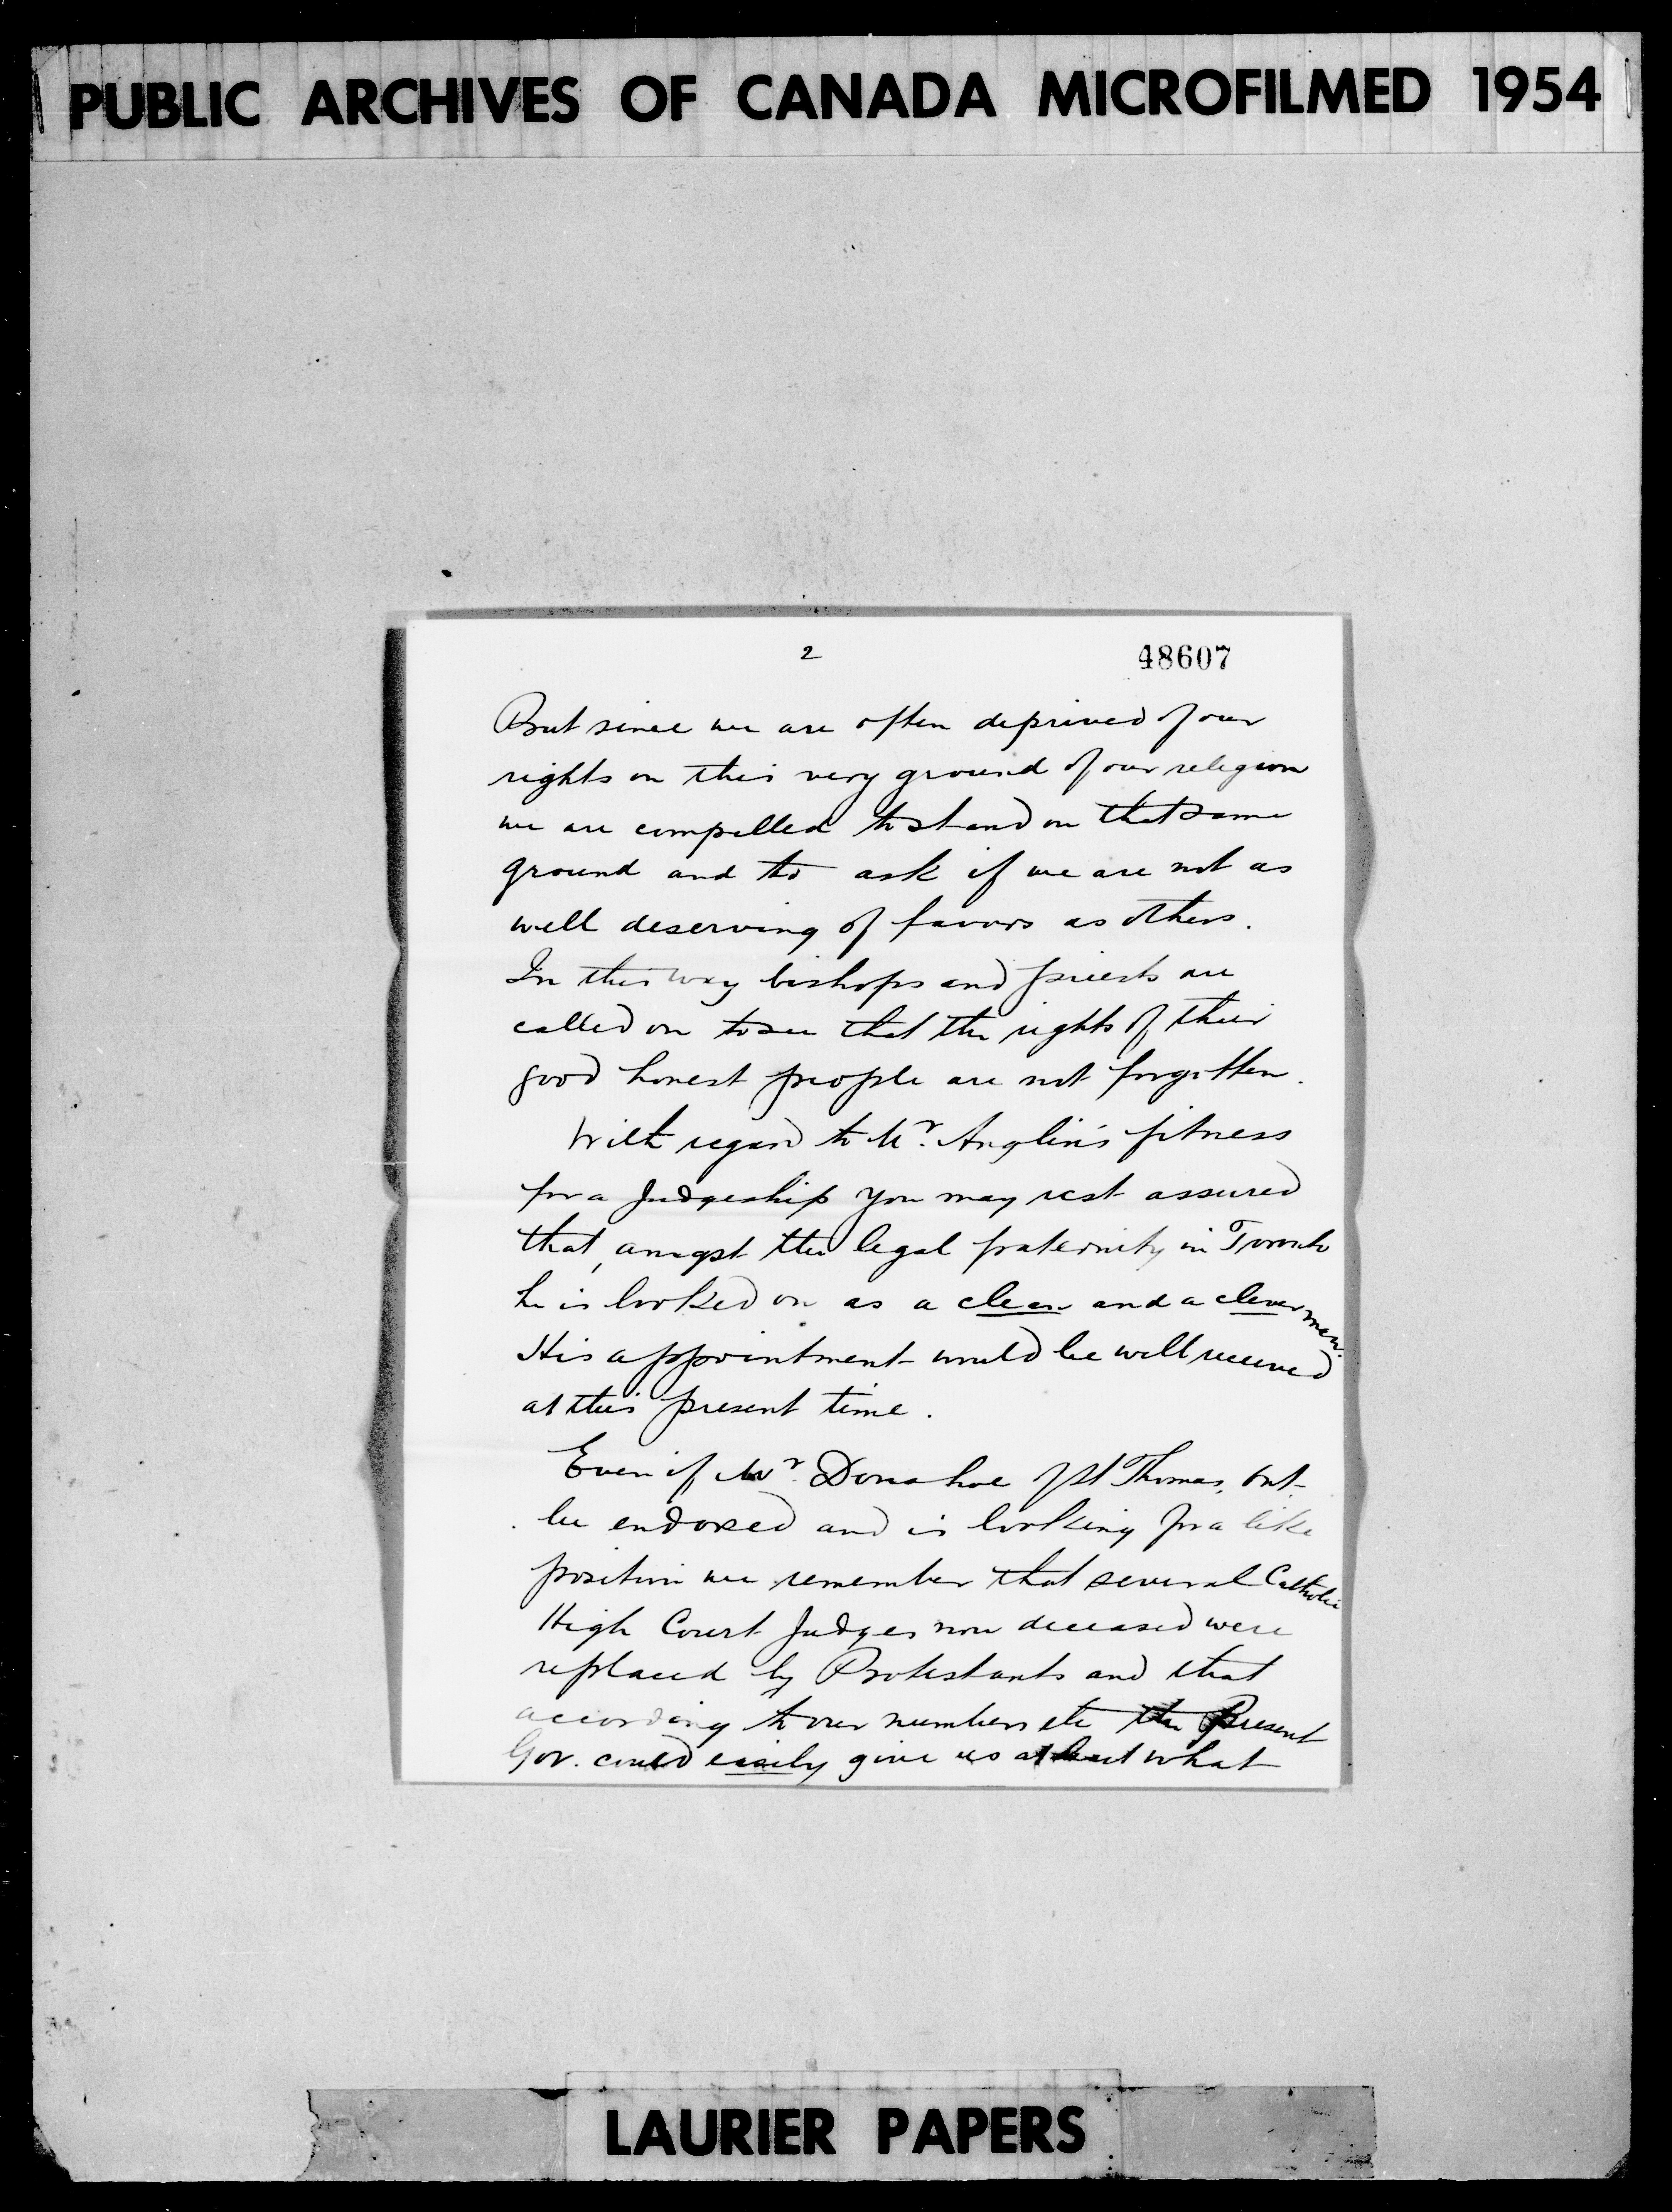 PUBLIC ARCHIVES OF CANADA MICROFILMED 1954
2
48607
But since we are often deprived of our
rights on this very ground of our religion
we are compelled to stand on that same
ground and to ask if we are not as
well deserving of favors as others.
In this way bishops and priests are
called on to see that the rights of their
good honest people are not forgotten.
With regard to Mr. Anglin's fitness
for a Judgeship you may rest assured
that, amgst the legal fraternity in Toronto
he is looked on as a clean and a clever man.
His appointment would be well received
at this present time.
Even if Mr. Donahoe of St Thomas, Ont.
be endorsed and is looking for a like
position we remember that several Catholic
High Court Judges now deceased were
replaced by Protestants and that
according to our numbers etc the Present
Gov. could easily give us at least what
LAURIER PAPERS